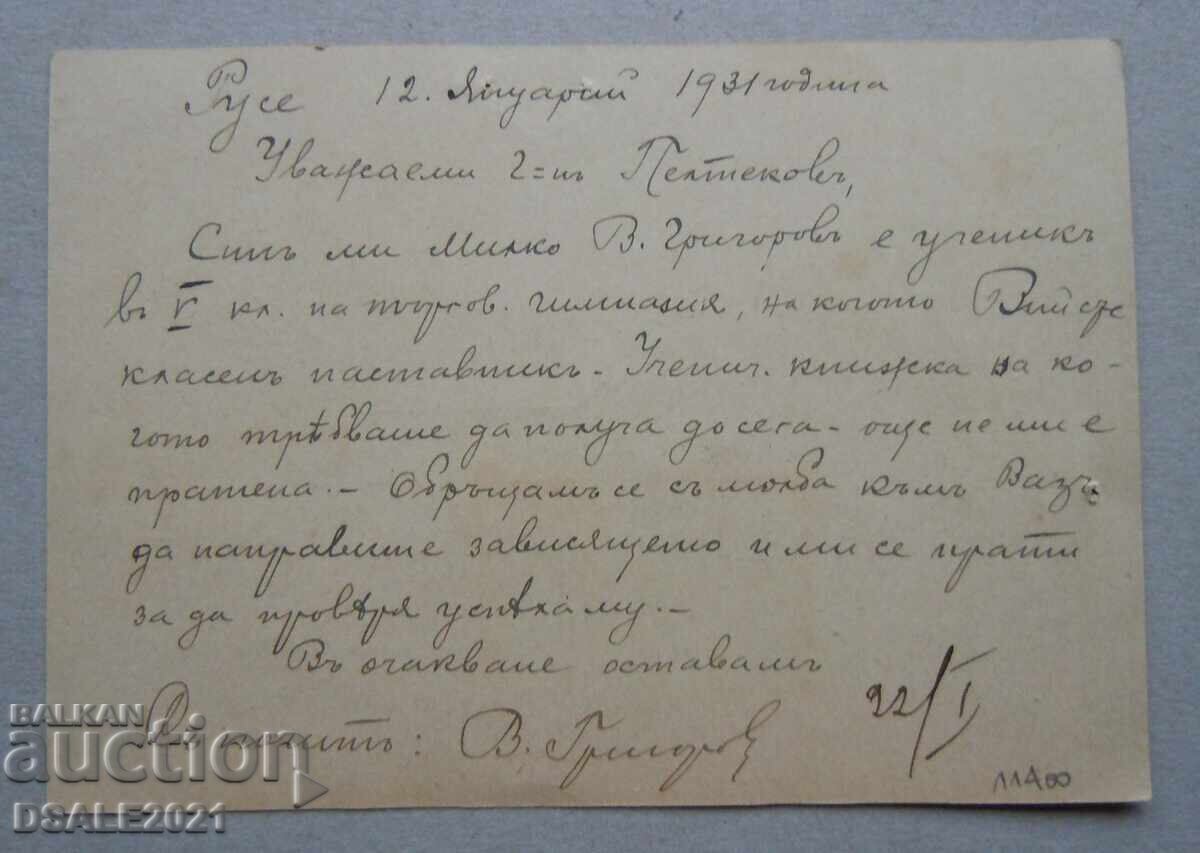 Русе 12. Януарий 1931 година
Уважаеми г=нъ Пелтековъ,
Синъ ми Милко В. Григоровъ е ученикъ
въ V кл. на търгов. гимназия, на когото Вий сте
класенъ наставникъ. Ученич. книжка на ко-
гото трѣбваше да получа до сега - още не ми е
пратена. - Обръщамъ се съ молба къмъ Васъ
да направите зависящето и ми се прати
за да провѣря успѣха му. -
Въ очакване оставамъ
В. Григоров
22/I
11400
BALKAN
auction
DSALE2021